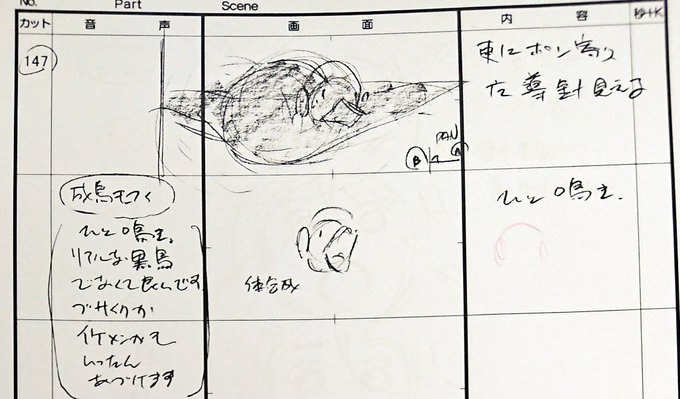 No. Part Scene
カット 音 声 画 面 内 容 秒+K
147
更にポン寄り
見える
PAN
B A
成鳥
ひと鳴き。
リアルな黒鳥
でなくて良いんです
ブサイクか
イケメンかも
いったん
あづけます
体合成
ひと鳴き.